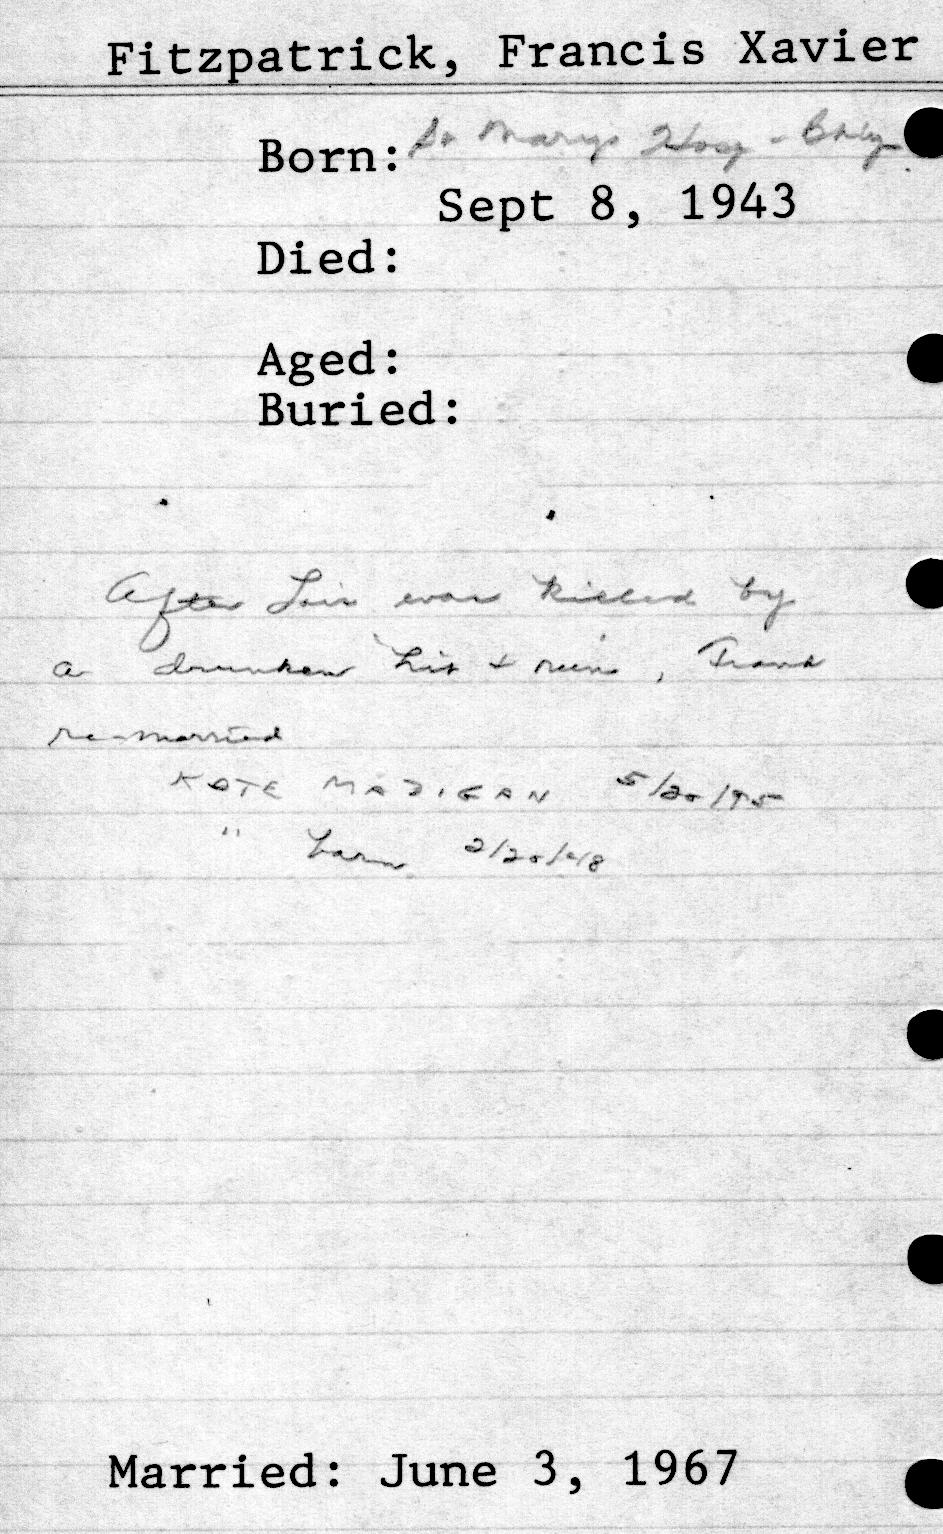 Fitzpatrick, Francis Xavier
Born: St Marys Hosp - Bkly
Sept 8, 1943
Died:
Aged:
Buried:
After Lois was killed by
a drunken hit & run, Frank
re-married
KATE MADIGAN 5/20/95
" born 2/20/48
Married: June 3, 1967